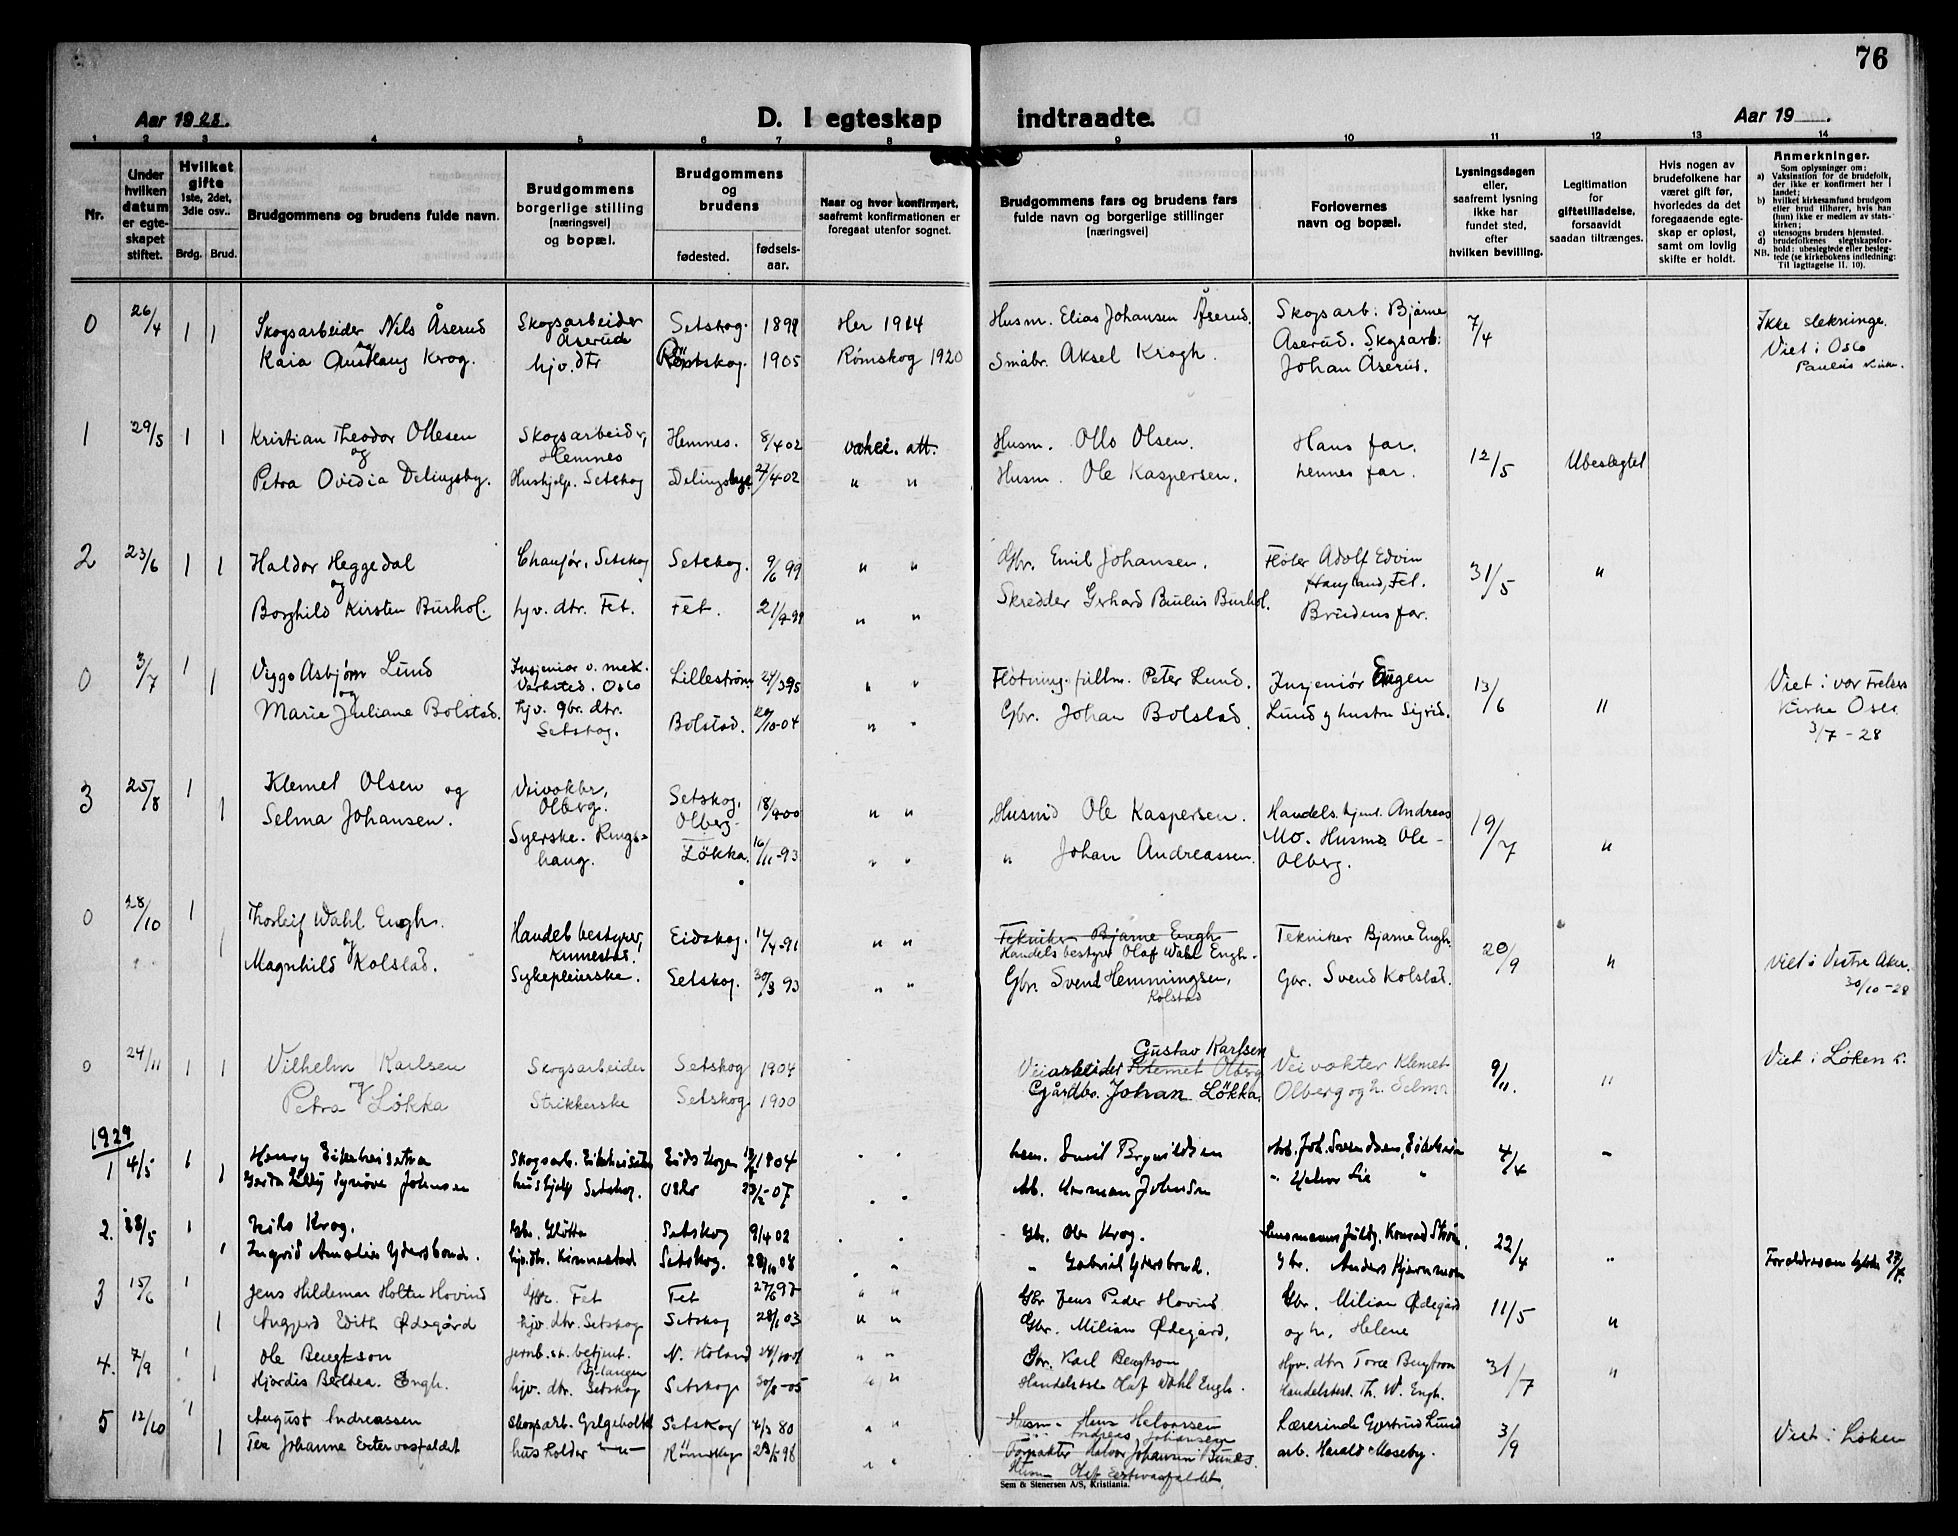 76
Aar 1928.
D. I egteskap indtraadte.
Aar 19 .
1 2 3 4 5 6 7 8 9 10 11 12 13 14
Nr.
Under hvilken datum er egteskapet stiftet.
Hvilket gifte 1ste, 2det, 3die osv..
Brdg. Brud.
Brudgommens og brudens fulde navn.
Brudgommens borgerlige stilling [næringsvei] og bopæl.
Brudgommens og brudens
fødested. fødselsaar.
Naar og hvor konfirmert, saafremt konfirmationen er foregaat utenfor sognet.
Brudgommens fars og brudens fars fulde navn og borgerlige stillinger [næringsvei]
Forlovernes navn og bopæl.
Lysningsdagen eller, saafremt lysning ikke har fundet sted, efter hvilken bevilling.
Legitimation for giftetilladelse, forsaavidt saadan tiltrænges.
Hvis nogen av brudefolkene har været gift før, hvorledes da det foregaaende egteskap er opløst, samt om lovlig skifte er holdt.
Anmerkninger.
Som oplysninger om:
a) Vaksination for de brudefolk, der ikke er konfirmert her i landet;
b) hvilket kirkesamfund brudgom eller brud tilhører, hvis han (hun) ikke er medlem av statskirken;
c) utensogns bruders hjemsted.
d) brudefolkenes slegtskapsforhold: ubeslegtede eller beslegtede (se kirkebokens indledning: Til Iagttagelse II. 10).
NB.
0 26/4 1 1 Skogsarbeider Nils Åserud Skogsarbeider Åserud Setskog. 1899 Her 1914 Husm. Elias Johansen Åserud. Skogsarb. Bjarne 7/4 Ikke slektninge.
og Kaia Krog. hjv. dtr 1905 Rømskog 1920 Småbr. Aksel Krogh. Åserud. Skogsarb. Johan Åserud. Viet i Oslo Paulus Kirke.
1 29/5 1 1 Kristian Theodor Ollesen Skogsarbeider, Hemnes Hemnes. 8/4 02 att. Husm. Olsen. Hans far. 12/5 Ubeslegtet
og Petra Ovidia Delingsby. Hushjelp. Setskog 27/4-02 " " Husm. Ole Kaspersen. hennes far.
2 23/6 1 1 Haldor Heggedal Chauför, Setskog Setskog. 9/6 99 " " Gbr. Emil Johansen. Fløter Adolf Edvin 31/5 "
og Borghild Kirsten Burhol. hjv. dtr. Fet. Fet. " " Skredder Gerhard Paulus Burhol. Haugland, Fet. Brudens far.
0 3/7 1 1 Viggo Asbjørn Lund Insjeniør v. mek. Verksted. Oslo Lillestrøm 24/3 95 " " Fløtning. fullm. Peter Lund. Insjeniør Eugen 13/6 " Viet i vor Frelsers
og Marie Juliane Bolstad. hjv. gbr. dtr. Setskog. Bolstad. 20/10-04 " " Gbr. Johan Bolstad Lund og hustru Sigrid. Kirke Oslo 3/7-28
3 25/8 1 1 Klemet Olsen og Veivokter, Olberg. Setskog, Olberg 18/9 00 " " Husmd Ole Kaspersen. Handels. bjent. Andreas 19/7 "
Selma Johansen. Syerske. Rings=haug. Løkka. 16/11-93 " " " Johan Andreassen. Mo. Husmd. Ole Olberg.
0 28/10 1 1 Thorleif Wahl Engh. Handelsbestyrer, Kinnestad. Eidskog. 14/4-91 " " Tekniker Bjarne Engh Handelsbestyrer Olaf Wahl Engh. Tekniker Bjarne Engh. 20/9 " Viet i Vestre Aker.
og Magnhild Kolstad. Sykepleierske. Setskog. 30/3 93 " " Gbr. Svend Hemmingsen, Kolstad Gbr. Svend Kolstad. 30/10-28
0 24/11 1 1 Vilhelm Karlsen Skogsarbeider Setskog 1904 Gustav Karlsen Veiarbeider Klemet Olberg Veivokter Klemet 9/11. " Viet i Løken k.
og Petra Løkka Strikkerske Setskog 1900 Gårdbr. Johan Løkka. Olberg og h. Selma
1929
1 4/5 1 1 Henry Eikeheisetra Skogsarb. Eidskogen 1904 " " Emil Brynildsen Arb. Joh. Svendsen, 4/4 "
Gerda Synøve Johnsen hushjelp Setskog. Oslo 07 " " Arb. Herman Johnsen " Halvor Lie "
2. 28/5 1 1 Nils Krog. Gbr. Glötta Setskog 9/4 02 " " Gbr. Ole Krog. Lensmannsfuldm. Konrad Strøm. 22/4 "
Ingrid Amalie Ydersbond. hjv. dtr. Kinnestad Setskog. 28/10 08 " " " Gabriel Ydersbond. Gbr. Anders Hjernmoen
3 15/6 1 1 Jens Hildemar Holter Hovind Gbr. Fet Fet 27/6 97 " " Gbr Jens Peder Hovind Gbr. Milian Ødegård 11/5 "
Angjerd Edith Ødegård hjv. dtr. Setskog Setskog 28/1 03 " " Gbr. Milian Ødegård, og h. Helene
4. 7/9 1 1 Ole Bengtson jernb. st. betjent. N. Høland " " Gbr. Karl Bengtson Hjv. dtr Tora Bengtson 31/7 "
Hjørdis Berthea Engh. hjv. dtr. Setskog Setskog 30/8-05 " " Handelsbest. Olaf Wahl Engh. Handelsbest. Th. W. Engh.
5 12/10 1 1 August Andreassen Skogsarb. Setskog 4/3 80 " " Husm. Hans Halvorsen Andreas Johansen Lærerinde Gjertrud Lund 3/9 Viet i Løken
Tea Johanne husholder —"— Rømskog 98 " " Forpakter Halvor Johansen Husm Olaf arb. Harald Moseby.
Sem & Stenersen A/S, Kristiania.